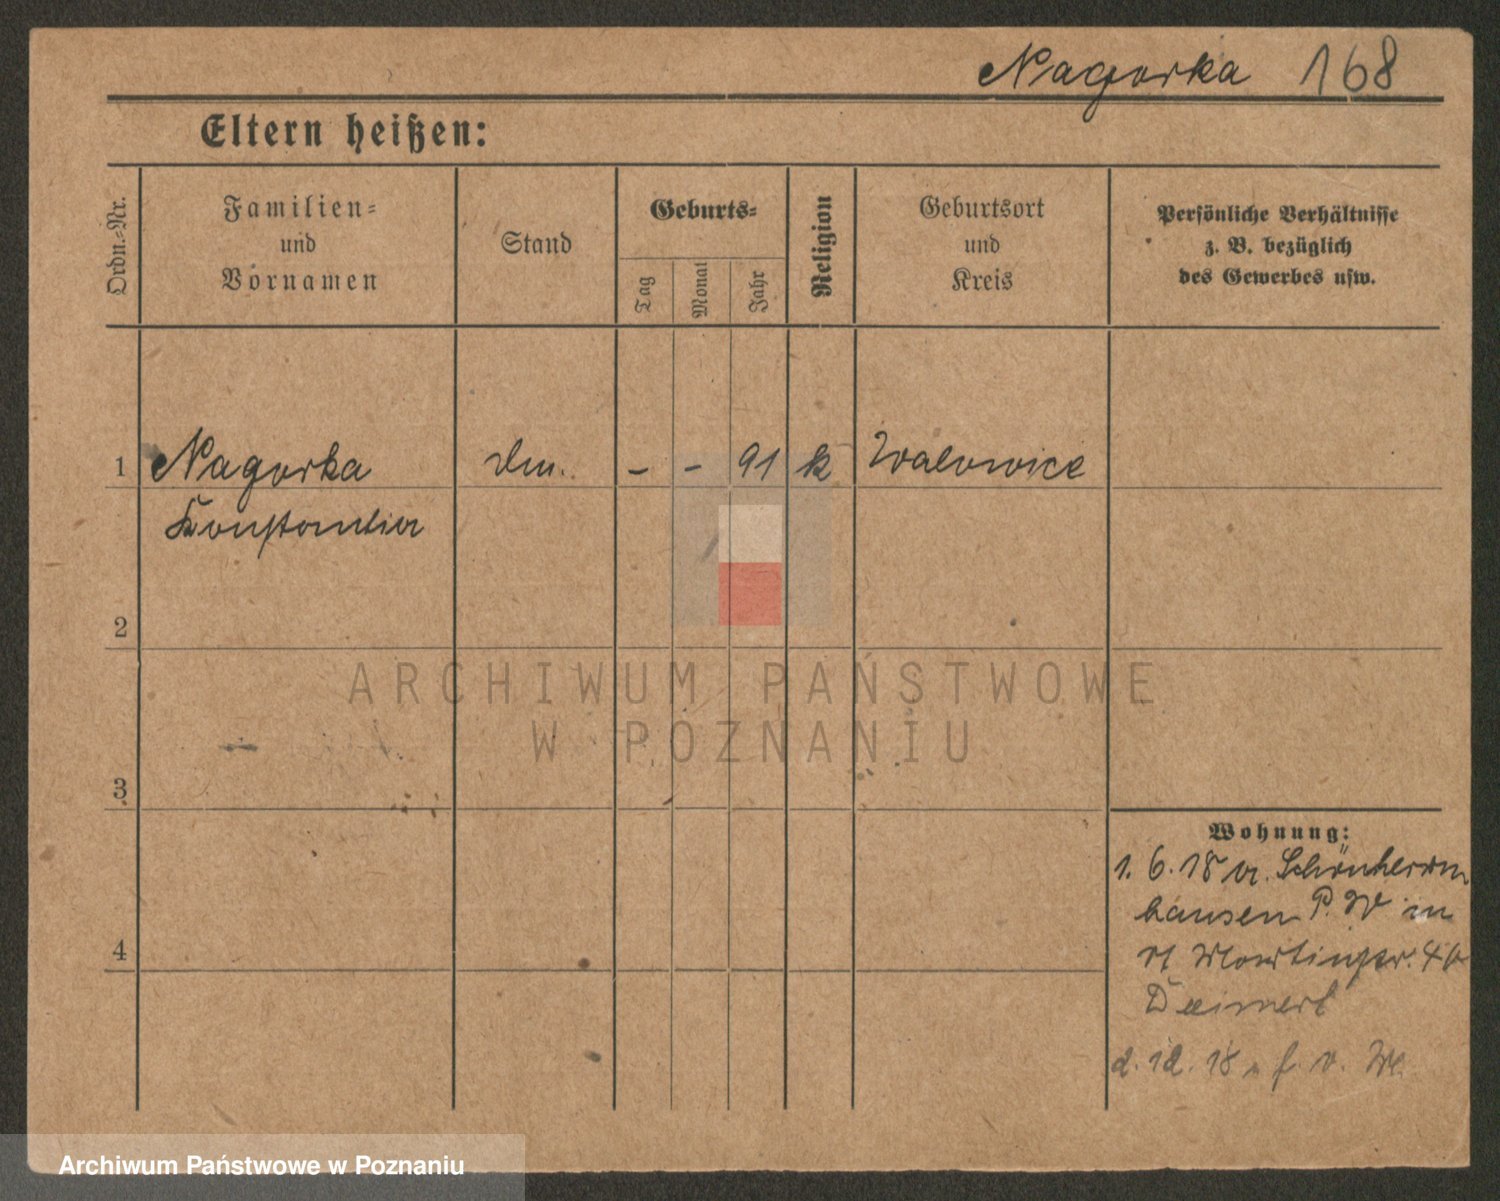 Nagorka 168
Eltern heißen:
Ordn.-Nr.
Familien-
und
Vornamen
Stand
Geburts-
Tag
Monat
Jahr
Religion
Geburtsort
und
Kreis
Persönliche Verhältnisse
z. B. bezüglich
des Gewerbes usw.
1 Nagorka - - 91 k Walowice
2
ARCHIWUM PAŃSTWOWE
W POZNANIU
3
Wohnung:
1. 6. 18 v. Schönherrn
hausen P. W in
Martinstr.
4
d. 12. 18 n f. v. W.
Archiwum Państwowe w Poznaniu